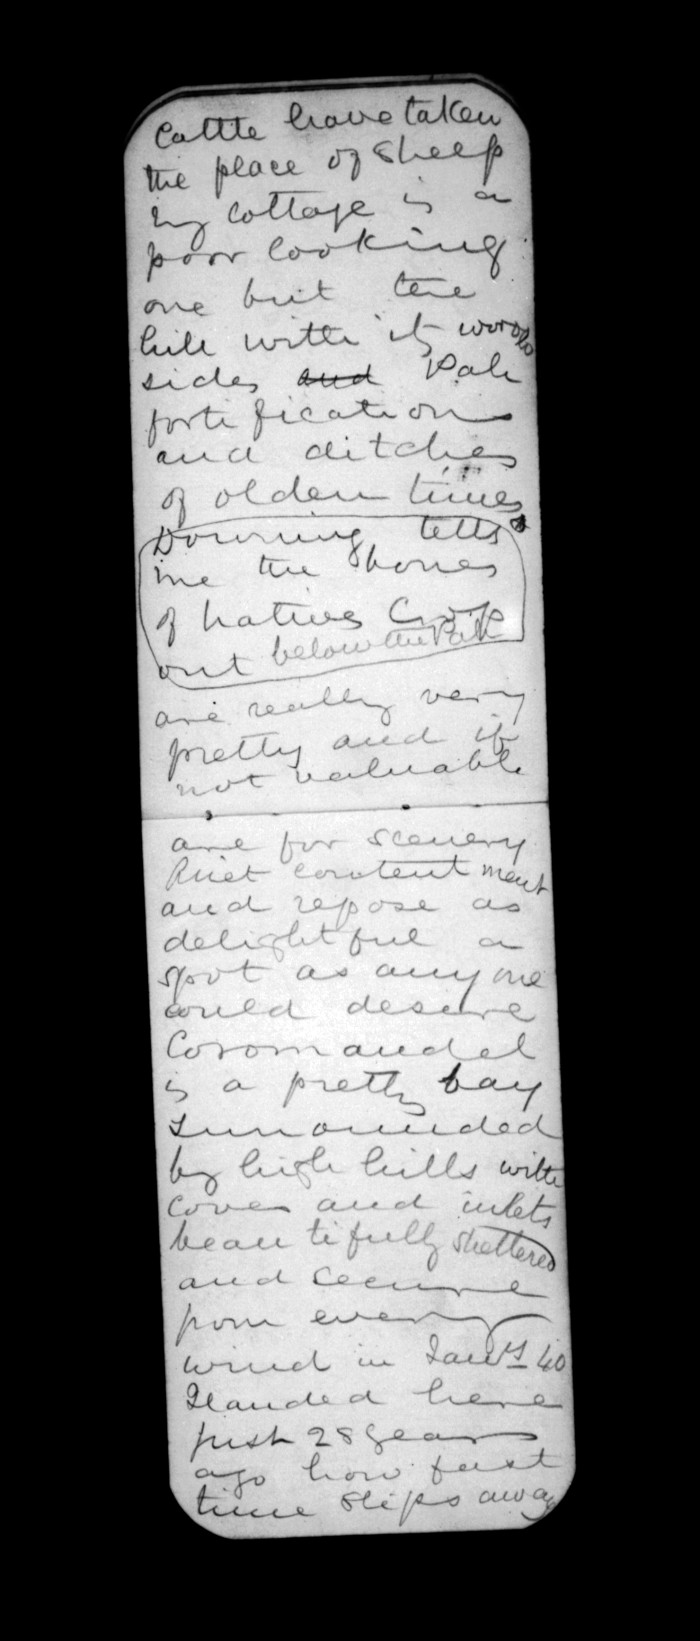 Cattle have taken
the place of Sheep
my cottage is a
poor looking
one but the
hill with its woody
sides and Pah
fortifications
and ditches
of olden times
Downing tells
me the bones
of natives Crop
out below the Pah
are really very
pretty and if
not valuable
are for scenery
Quiet contentment
and repose as
delightful a
spot as anyone
could desire
Coromandel
is a pretty bay
surrounded
by high hills with
coves and inlets
beautifully sheltered
and secure
from every
wind in Jany 40
I landed here
first 28 years
ago how fast
time slips away